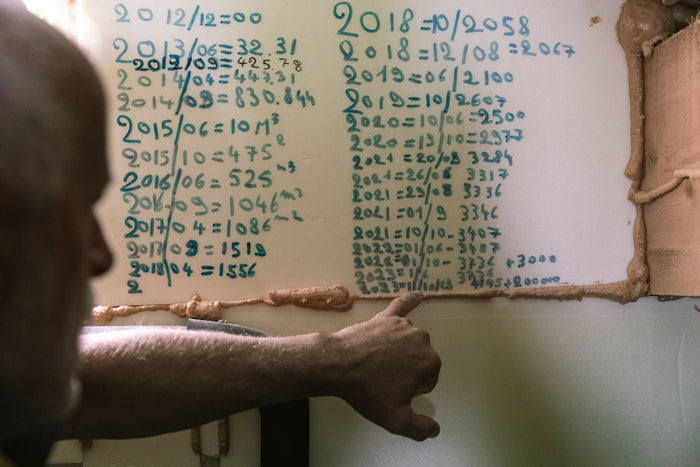 2012/12=00
2013/06=32.31
2012/09=425.78
2014/04=447.31
2014/09=830.844
2015/06=10M³
2015/10=475²
2016/06=525 m³
2016/09=1046 m²
2017/04=1086 m²
2017/09=1519
2018/04=1556
2
2018=10/2058
2018=12/08=2067
2019=06/2100
2019=10/2607
2020=10/06=2500
2020=13/10=2977
2021=20/08 3284
2021=26/06 3317
2021=29/08 3336
2021=01/9 3346
2021=10/10-3407
2022=01/06-3407
2022=01/10-3736 +3000
3736
+200000